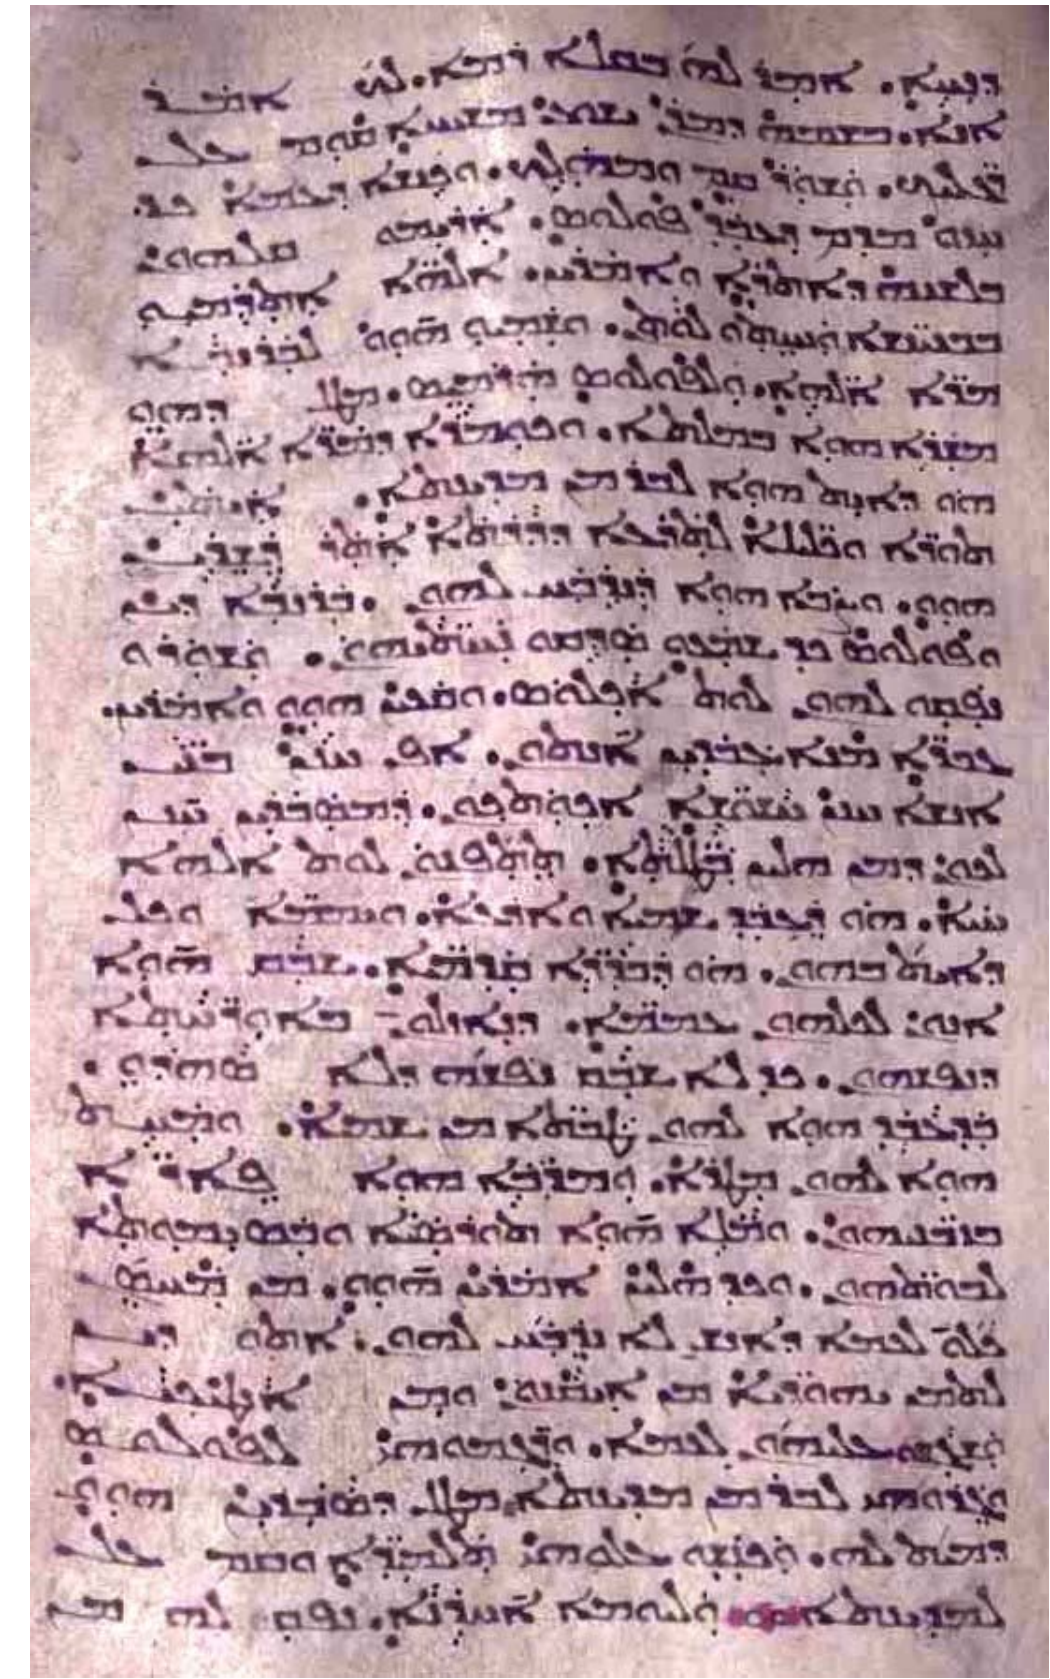 ܕܢܚܐ. ܐܡܪ ܠܗ ܒܩܠܐ ܪܡܐ. ܠܟ ܐܡܪ
ܐܢܐ. ܒܫܡܗ ܕܡܪܢ ܝܫܘܥ ܡܫܝܚܐ ܩܘܡ ܥܠ
ܪܓܠܝܟ. ܘܫܘܪ ܩܡ ܘܗܠܟ. ܘܟܢܫܐ ܕܥܡܐ ܟܕ
ܚܙܘ ܡܕܡ ܕܥܒܕ ܦܘܠܘܣ. ܐܪܝܡܘ ܩܠܗܘܢ
ܒܠܫܢܗ ܕܐܬܪܐ ܘܐܡܪܝܢ. ܐܠܗܐ ܐܬܕܡܝܘ
ܒܒܢܝܢܫܐ ܘܢܚܬܘ ܠܘܬܢ. ܘܫܡܗܘ ܗܘܘ ܠܒܪܢܒܐ
ܡܪܐ ܐܠܗܐ. ܘܠܦܘܠܘܣ ܗܪܡܝܣ. ܡܛܠ ܕܗܘ
ܡܫܪܐ ܗܘܐ ܒܡܠܬܐ. ܘܟܘܡܪܐ ܕܡܪܐ ܐܠܗܐ
ܗܘ ܕܐܝܬ ܗܘܐ ܠܒܪ ܡܢ ܡܕܝܢܬܐ. ܐܝܬܝ
ܬܘܪܐ ܘܟܠܝܠܐ ܠܬܪܥܐ ܕܕܪܬܐ ܐܬܪ ܕܫܪܝܢ
ܗܘܘ. ܘܨܒܐ ܗܘܐ ܕܢܕܒܚ ܠܗܘܢ. ܒܪܢܒܐ ܕܝܢ
ܘܦܘܠܘܣ ܟܕ ܫܡܥܘ ܣܕܩܘ ܢܚܬܝܗܘܢ. ܘܫܘܪܘ
ܢܦܩܘ ܠܗܘܢ ܠܘܬ ܐܟܠܘܣ. ܘܩܥܝܢ ܗܘܘ ܘܐܡܪܝܢ.
ܓܒܪܐ ܡܢܐ ܥܒܕܝܢ ܐܢܬܘܢ. ܐܦ ܚܢܢ ܒܢܝ
ܐܢܫܐ ܚܢܢ ܚܫܘܫܐ ܐܟܘܬܟܘܢ. ܕܡܣܒܪܝܢ ܚܢܢ
ܠܟܘܢ ܕܡܢ ܗܠܝܢ ܒܛܝܠܬܐ. ܬܬܦܢܘܢ ܠܘܬ ܐܠܗܐ
ܚܝܐ. ܗܘ ܕܥܒܕ ܫܡܝܐ ܘܐܪܥܐ. ܘܝܡܡܐ ܘܟܠ
ܕܐܝܬ ܒܗܘܢ. ܗܘ ܕܒܕܪܐ ܩܕܡܝܐ. ܫܒܩ ܗܘܐ
ܐܢܘܢ ܠܟܠܗܘܢ ܥܡܡܐ. ܕܢܐܙܠܘܢ ܒܐܘܪܚܬܐ
ܕܢܦܫܗܘܢ. ܟܕ ܠܐ ܫܒܩ ܢܦܫܗ ܕܠܐ ܣܗܕܘ.
ܒܕܥܒܕ ܗܘܐ ܠܗܘܢ ܛܒܬܐ ܡܢ ܫܡܝܐ. ܘܡܚܬ
ܗܘܐ ܠܗܘܢ ܡܛܪܐ. ܘܡܪܒܐ ܗܘܐ ܦܐܪܐ
ܒܙܒܢܝܗܘܢ. ܘܡܠܐ ܗܘܐ ܬܘܪܣܝܐ ܘܒܘܣܡܐ
ܠܒܘܬܗܘܢ. ܘܟܕ ܗܠܝܢ ܐܡܪܝܢ ܗܘܘ. ܡܢ
ܟܠܘ ܠܥܡܐ ܕܐܢܫ ܠܐ ܢܕܒܚ ܠܗܘܢ. ܐܬܘ ܕܝܢ
ܠܬܡܢ ܝܗܘܕܝܐ ܡܢ ܐܝܩܢܘܢ ܘܡܢ ܐܢܛܝܟܝܐ.
ܘܫܓܫܘ ܥܠܝܗܘܢ ܠܥܡܐ. ܘܪܓܡܘܗܝ ܠܦܘܠܘܣ
ܘܓܪܘܗܝ ܠܒܪ ܡܢ ܡܕܝܢܬܐ ܡܛܠ ܕܣܒܪܘ ܗܘܘ
ܕܡܝܬ ܠܗ. ܘܟܢܫܘ ܥܠܘܗܝ ܬܠܡܝܕܐ ܘܩܡ ܥܠ
ܠܡܕܝܢܬܐ ܘܠܝܘܡܐ ܐܚܪܢܐ. ܢܦܩ ܠܗ ܡܢ